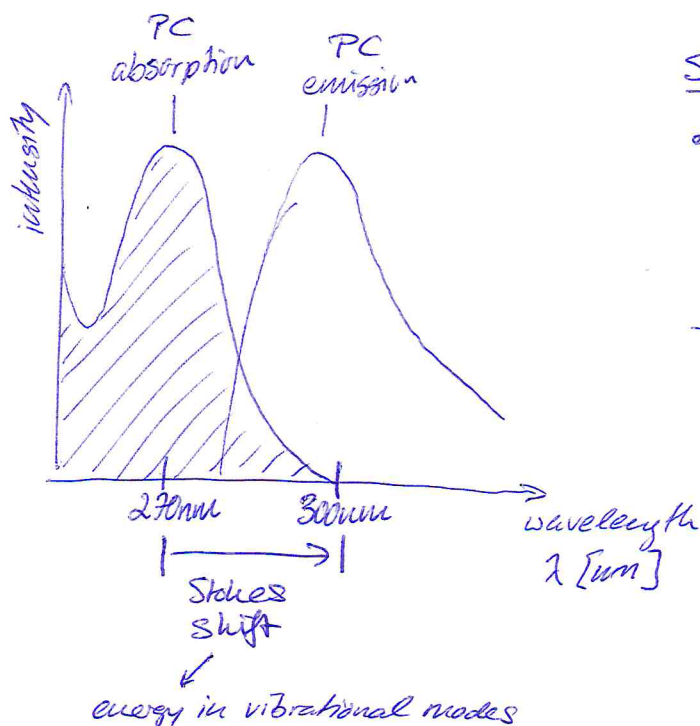 PC
absorption
PC
emission
intensity
270nm
300nm
wavelength
λ [nm]
Stokes
shift
energy in vibrational modes